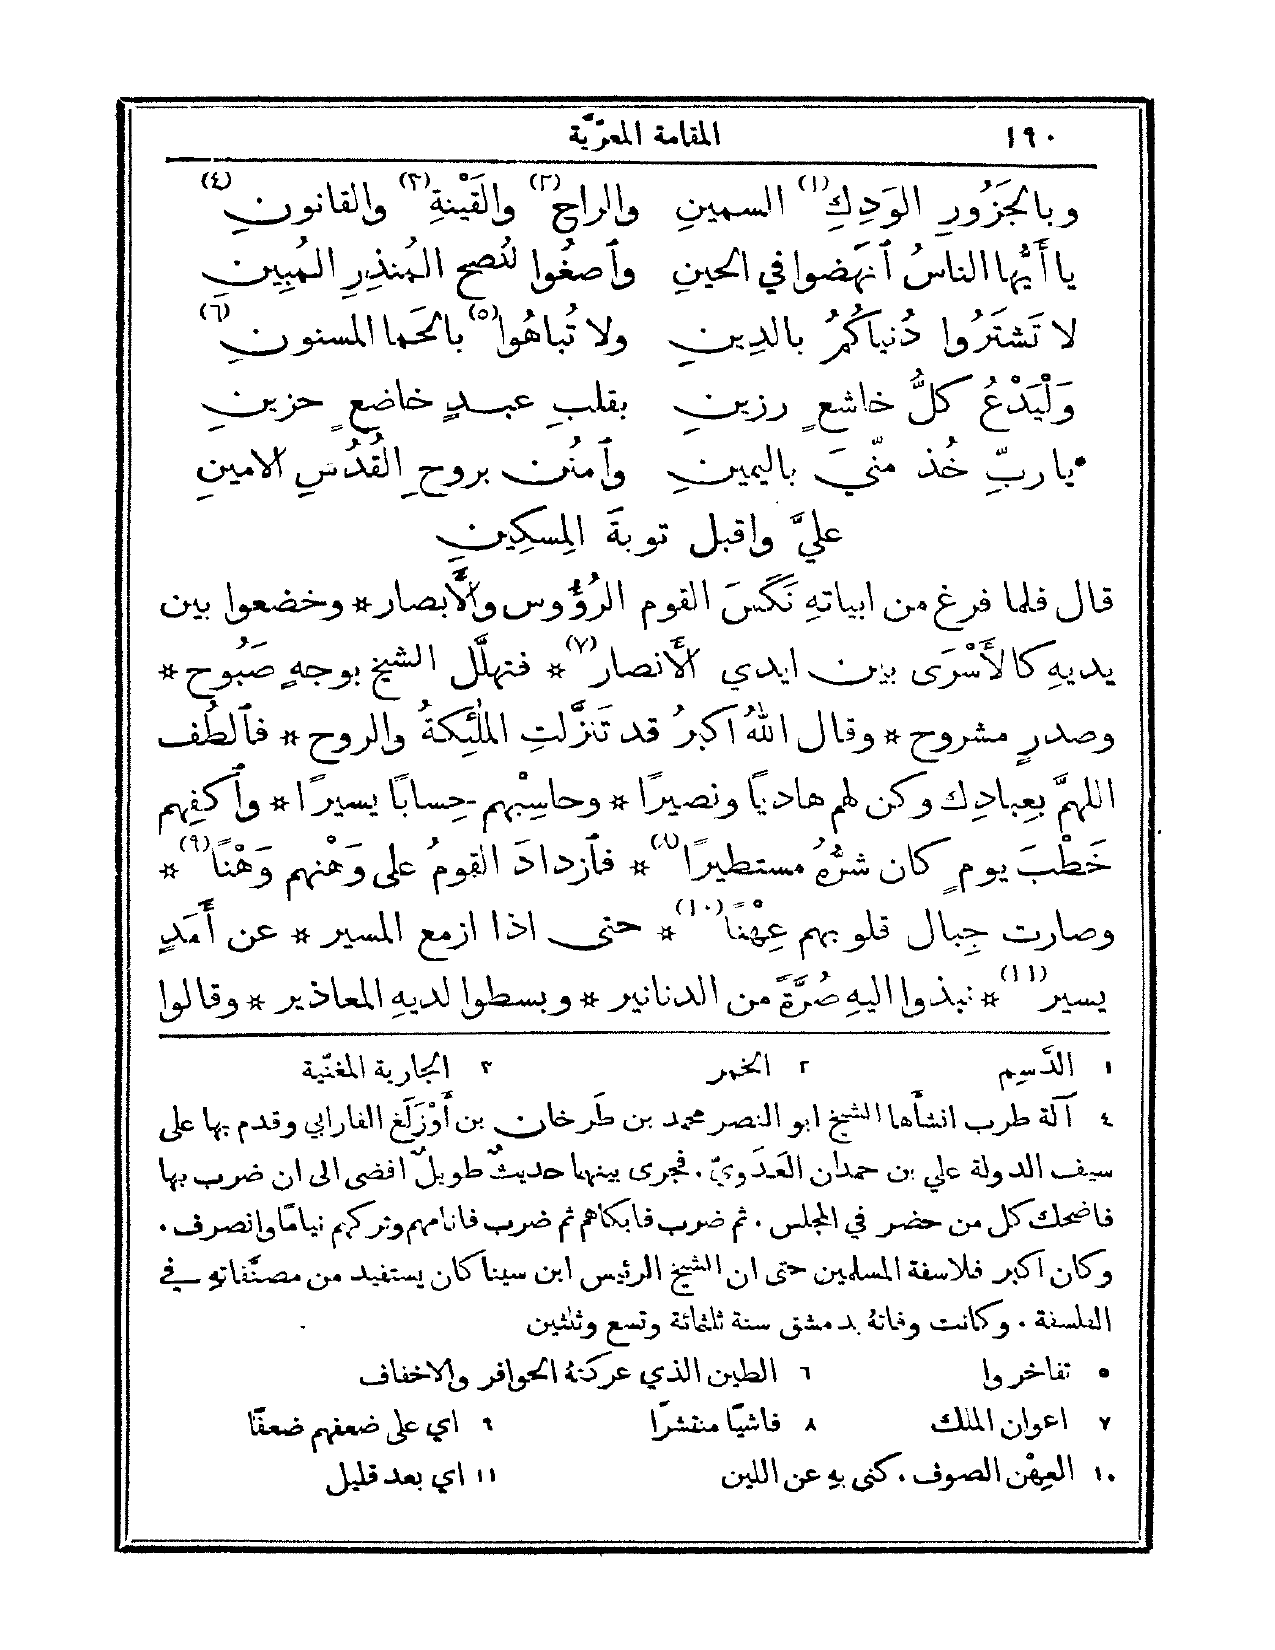 ١٩٠ المقامة المعرّيَّة
وبالجَزُورِ الوَدِكِ(١) السمينِ والراحِ(٢) والقَيْنةِ(٣) والقانونِ(٤)
يا أَيُّها الناسُ ٱنهَضوا في الحينِ وٱصغُوا لنُصحِ المُنذِرِ المُبِينِ
لا تَشتَرُوا دُنياكُمُ بالدِينِ ولا تُباهُوا(٥) بالحَمإ المسنونِ(٦)
وَلْيَدْعُ كلُّ خاشعٍ رزينِ بقلبِ عبدٍ خاضعٍ حزينِ
يا ربِّ خُذ منّيَ باليمينِ وٱمنُن بروحِ القُدُسِ الامينِ
عليَّ واقبل توبةَ المِسكِينِ
قال فلما فرغ من ابياتهِ نَكَّسَ القوم الرُؤُوس والأَبصار * وخضعوا بين
يديهِ كالأَسْرَى بين ايدي الأَنصار(٧) * فتهلَّل الشيخ بوجهٍ صَبُوح *
وصدرٍ مشروح * وقال اللهُ اكبرُ قد تَنَزَّلتِ الملٰئِكةُ والروح * فٱلطُف
اللهمَّ بِعبادِك وكن لهم هاديًا ونصيرًا * وحاسِبْهم حِسابًا يسيرًا * وٱكفِهم
خَطْبَ يومٍ كان شرُّهُ مستطيرًا(٨) * فٱزدادَ القومُ على وَهْنهم وَهْنًا(٩) *
وصارت جِبال قلوبهم عِهْنًا(١٠) * حتى اذا ازمع المسير * عن أَمَدٍ
يسير(١١) * نبذوا اليهِ صُرَّةً من الدنانير * وبسطوا لديهِ المعاذير * وقالوا
١ الدَّسِم ٢ الخمر ٣ الجارية المغنّية
٤ آلة طرب انشأها الشيخ ابو النصر محمد بن طَرخان بن أَوْزَلَغ الفارابي وقدم بها على
سيف الدولة علي بن حمدان العَدَويّ. فجرى بينهما حديثٌ طويلٌ افضى الى ان ضرب بها
فاضحك كل من حضر في المجلس. ثم ضرب فابكاهم ثم ضرب فانامهم وتركهم نيامًا وانصرف.
وكان اكبر فلاسفة المسلمين حتى ان الشيخ الرئيس ابن سينا كان يستفيد من مصنَّفاتهِ في
الفلسفة. وكانت وفاتهُ بدمشق سنة ثلثمائة وتسع وثلثين
٥ تفاخروا ٦ الطين الذي عركتهُ الحوافر والاخفاف
٧ اعوان الملك ٨ فاشيًا منتشرًا ٩ اي على ضعفهم ضعفًا
١٠ العِهْن الصوف. كنى بهِ عن اللين ١١ اي بعد قليل